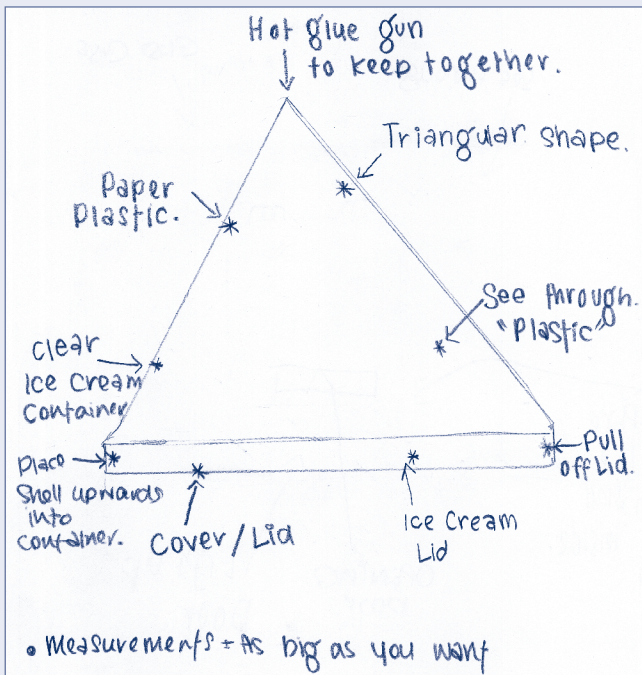 Hot glue gun
to keep together.
Triangular shape.
Paper
Plastic.
See through.
"Plastic"
Clear
Ice Cream
Container
Pull
off Lid.
Place
Shell upwards
into
container.
Cover / Lid
Ice Cream
Lid
• Measurements - As big as you want